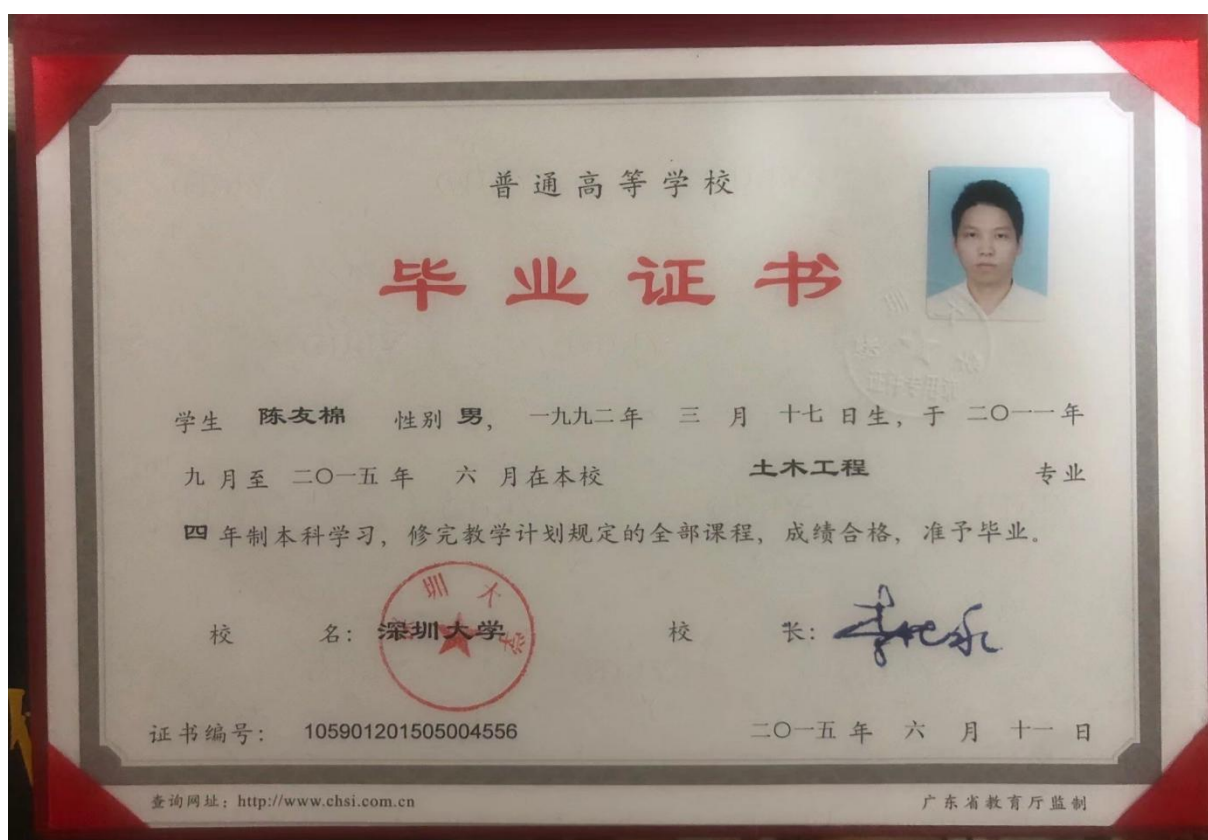 普通高等学校
毕业证书
学生 陈友棉 性别 男， 一九九二年 三 月 十七 日生，于 二〇一一年
九 月至 二〇一五 年 六 月在本校 土木工程 专业
四 年制本科学习，修完教学计划规定的全部课程，成绩合格，准予毕业。
校 名：深圳大学 校 长：
证书编号： 105901201505004556 二〇一五 年 六 月 十一 日
查询网址：http://www.chsi.com.cn 广东省教育厅监制